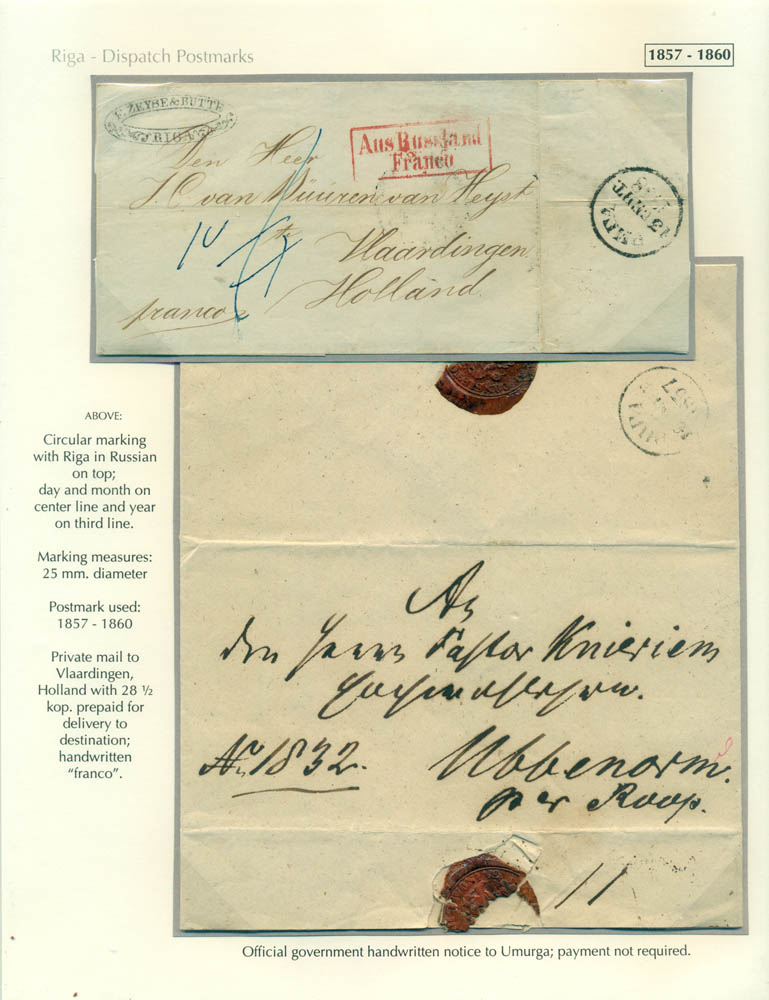 Riga - Dispatch Postmarks
1857 - 1860
F. ZEYSE & BUTTE
RIGA
Aus Russland
Franco
Den Heer
J. C. van Buuren van Heyst
te
Vlaardingen
Holland
franco
РИГА
ABOVE:
Circular marking
with Riga in Russian
on top;
day and month on
center line and year
on third line.
Marking measures:
25 mm. diameter
Postmark used:
1857 - 1860
Private mail to
Vlaardingen,
Holland with 28 ½
kop. prepaid for
delivery to
destination;
handwritten
“franco”.
РИГА
1857
An
den Herrn Pastor Knieriem
№ 1832.
Ubbenorm.
per Roop.
11
Official government handwritten notice to Umurga; payment not required.